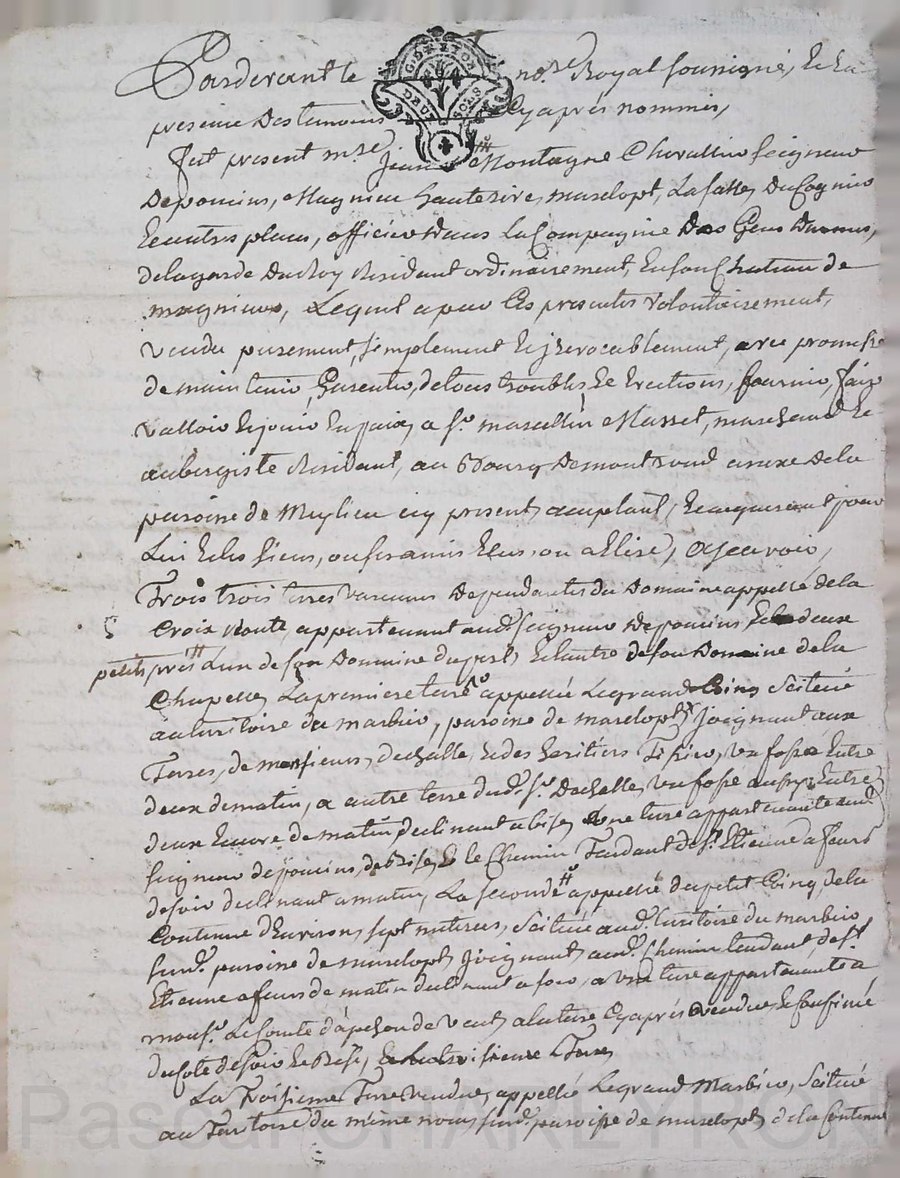 Pardevant le no.re Royal soussigné, Et En
G.DE LYON
DEUX SOLS
presence Des temoins Cyaprés nommés,
fut present m.re Jean Montagne Chevallier seigneur
Deponcins, Magnieu hauterive, marclopt, Lasalle, Du Cognico
Et autres places, officier dans la Compagnie Des Gens Darmes,
delagarde Du Roy Residant ordinairement, En son Chateau de
magnieu, Lequel apar Ces presentes volontairement,
vendu purement, simplement Et jrrevocablement, avec promesse
de maintenir, Garentir, de tous troubles, Et Evictions, fournir, faire
valloir Et jouir En paix, a s.r marcellin Masset, marchand Et
aubergiste Residant, au Bourg Demontrond anexe Dela
paroisse de Meylieu icy present, acceptant, Et acquerant pour
Lui Et les siens, ou ses amis Elus, ou a Elire, Ascavoir,
Trois trois terres Dependantes du Domaine appellé dela
Croix appartenant aud. seigneur Deponcins, Et deux
petits prés Lun de son Domaine Et Lautre de son Domaine dela
Chapelle, La premiere terre appellée Le grand Cinq Scituée
au territoire du marbico, paroisse de marclopt, joignant aux
Terres, de messieurs, Dechalle, Et des heritiers un fossé Entre
deux dematin, a autre terre dud. s.r Dechalle, un fossé aussy Entre
deux Encore de matin declinant abise, Une terre appartenante aud.
seigneur deponcins, de Bise, Et le Chemin Tendant de S.t Etienne a feurs
de soir declinant a matin, La seconde appellée du petit Cinq, de la
Contenue D'Environ, sept meterees, Scituée aud. territoire du marbico
susd. paroisse de marclopt, joignant, aud. Chemin tendant, de S.t
Etienne a feurs de matin declinant a soir, a une terre appartenante a
mons.r Le Comte d'apchon de vent, a la terre Cyaprés vendue, Et Confinée
du coté de soir Et Bise,
La Troisieme Terre vendue, appellée Le grand Marbico, Scituée
au Territoire du même nom, susd. paroisse de marclopt, de la Contenue